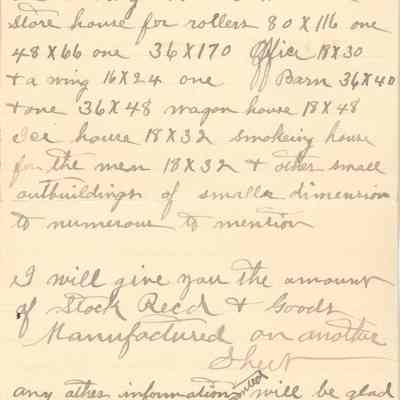 Store house for rollers 80 X 116 one
48 X 66 one 36 X 170 Office 18 X 30
+ a wing 16 X 24 one Barn 36 X 40
+ one 36 X 48 wagon house 18 X 48
Ice house 18 X 32 smokeing house
for the men 18 X 32 + other small
outbuildings of smaller dimension
to numerous to mention
I will give you the amount
of Stock Recd + Goods
Manufactured on another
Sheet
any other information will be glad